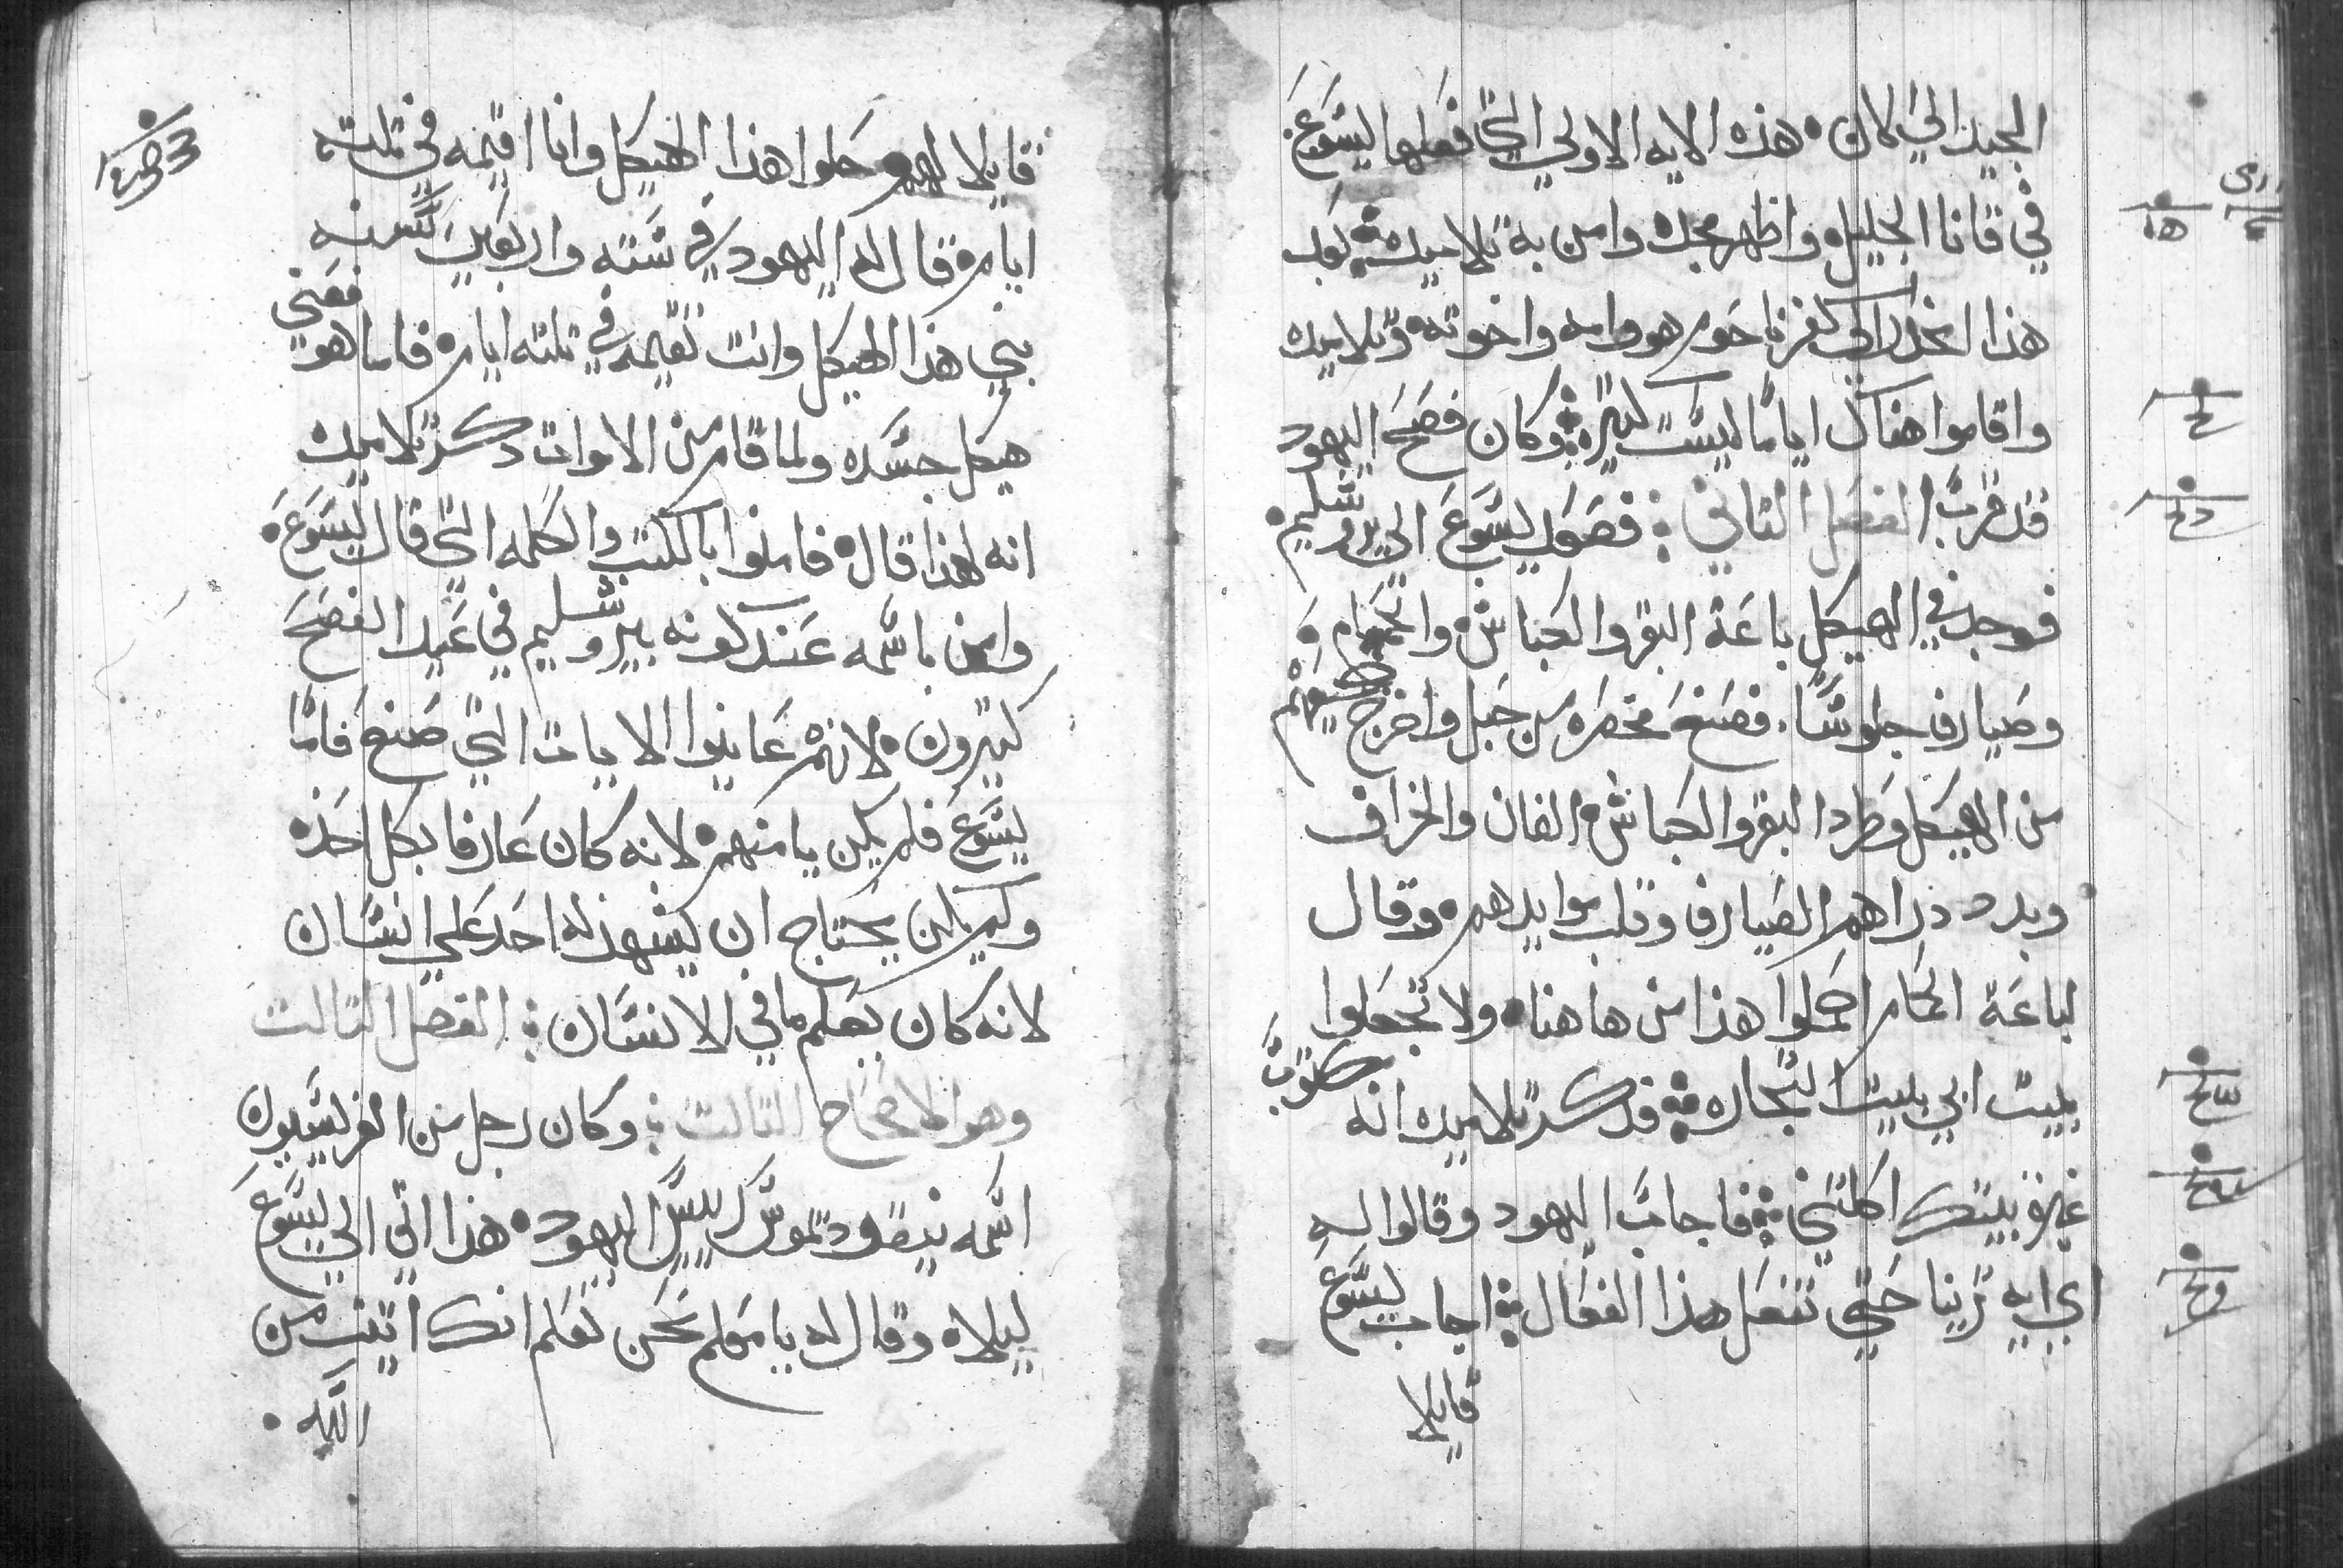 الجيد الي الان • هذه الايه الاولي التي فعلها ليسوع •
في قانا الجليل واظهر مجده وامن به تلاميده ܀ بعد
هذا انحدر الي كفرناحوم هو وامه واخوته وتلاميده
واقاموا هناك اياما ليست كتيره ܀ وكان فصح اليهود
قد قرب الفصل التاني : فصعد ليسوع الي يروشليم •
فوجد في الهيكل باعة البقر والكباش والحمام و
وصيارف جلوسا • فصنع مخصره من حبل واخرج جميعهم
من الهيكل وطرد البقر والكباش الفان والخراف
وبدد دراهم الصيارف وقلب موايدهم • وقال
لباعة الحمام احملوا هذا من هاهنا • ولا تجعلوا
بيت ابي بيت التجاره ܀ فدكر تلاميده انه مكتوب
غيرة بيتك اكلتني ܀ فاجاب اليهود وقالوا له
اي ايه ترينا حتي تفعل هذا الفعال ܀ اجاب ليسوع
قايلا
قايلا لهم حلوا هذا الهيكل وانا اقيمه في تلتة
ايام • قال له اليهود في ستة واربعين سنه
بني هذا الهيكل وانت تقيمه في تلتة ايام • فاما هو فعني
هيكل جسده ولما قام من الاموات دكر تلاميده
انه لهذا قال • فامنوا بالكتب والكلمه التي قال ليسوع •
وامن باسمه عند كونه بيروشليم في عيد الفصح
كتيرون • لانهم عاينوا الايات التي صنع فاما
يسوع فلم يكن يامنهم • لانه كان عارفا بكل احد •
ولم يكن يحتاج ان يشهد له احد علي انسان
لانه كان يعلم ما في الانسان : الفصل التالت
وهو الاصحاح التالت : وكان رجل من الفريسيون
اسمه نيقوديموس رييس اليهود • هذا اتي الي ليسوع
ليلا • وقال له يا معلم نحن نعلم انك اتيت من
الله •